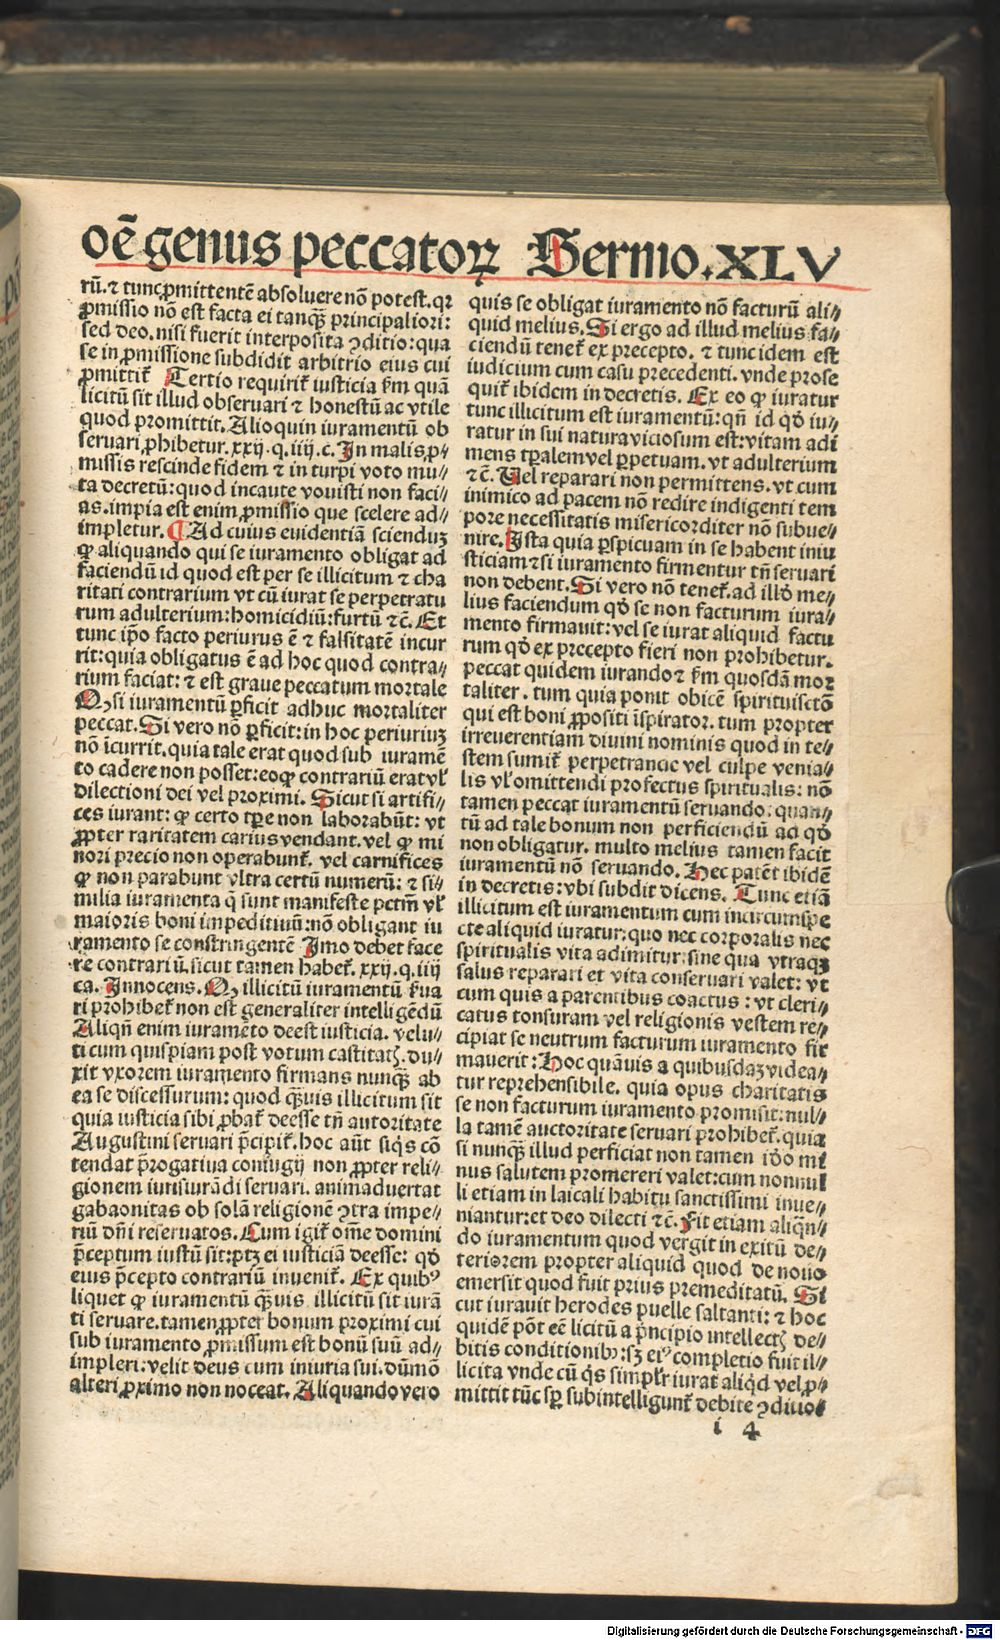 oẽ genus peccatoꝝ Sermo.XLV
rũ. ⁊ tunc ꝓmittentẽ absoluere nõ potest. qꝛ
ꝓmissio nõ est facta ei tanqᷓ principaliori:
sed deo. nisi fuerit interposita ↄditio: qua
se in ꝓmissione subdidit arbitrio eius cui
ꝓmittit᷑ Tertio requirit᷑ iusticia ẜm quã
licitũ sit illud obseruari ⁊ honestũ ac vtile
quod promittit. Alioquin iuramentũ ob
seruari ꝓhibetur. xxij. q. iiij. c. In malis ꝓ⸗
missis rescinde fidem ⁊ in turpi voto mu⸗
ta decretũ: quod incaute vouisti non faci⸗
as. impia est enim ꝓmissio que scelere ad⸗
impletur. ¶ Ad cuius euidentiã scienduꝫ
ꝙ aliquando qui se iuramento obligat ad
faciendũ id quod est per se illicitum ⁊ cha
ritati contrarium vt cũ iurat se perpetratu
rum adulterium: homicidiũ: furtũ ⁊c̃. Et
tunc ip̃o facto periurus ẽ ⁊ falsitatẽ incur
rit: quia obligatus ẽ ad hoc quod contra⸗
rium faciat: ⁊ est graue peccatum mortale
Qꝫ si iuramentũ ꝑficit adhuc mortaliter
peccat. Si vero nõ ꝑficit: in hoc periuriuꝫ
nõ ĩcurrit. quia tale erat quod sub iuramẽ
to cadere non posset: eoꝙ contrariũ erat vl̕
dilectioni dei vel proximi. Sicut si artifi⸗
ces iurant: ꝙ certo tp̃e non laborabũt: vt
ꝓpter raritatem carius vendant. vel ꝙ mi
nori precio non operabunt᷑. vel carnifices
ꝙ non parabunt vltra certũ numerũ: ⁊ si⸗
milia iuramenta q̃ sunt manifeste pctm̃ vl̕
maioris boni impeditiuũ: nõ obligant iu
ramento se constringentẽ Imo debet face
re contrariũ. sicut tamen habet᷑. xxij. q. iiij
ca. Innocens. Qꝫ illicitũ iuramentũ ẜua
ri prohibet᷑ non est generaliter intelligẽdũ
Aliqñ enim iuramẽto deest iusticia. velu⸗
ti cum quispiam post votum castitatꝭ. du⸗
xit vxorem iuramento firmans nunqᷓ ab
ea se discessurum: quod qᷓuis illicitum sit
quia iusticia sibi ꝓbat᷑ deesse tñ autoritate
Augustini seruari p̃cipit᷑. hoc aũt siq̃s cõ
tendat p̃rogatiua coniugij non ꝓpter reli⸗
gionem iurisiurãdi seruari. animaduertat
gabaonitas ob solã religionẽ ↄtra impe⸗
riũ dñi reseruatos. Cum igit᷑ om̃e domini
p̃ceptum iustũ sit: ptꝫ ei iusticiã deesse: qđ
eius p̃cepto contrariũ inuenit᷑. Ex quibꝰ
liquet ꝙ iuramentũ qᷓuis illicitũ sit iurã
ti seruare. tamen ꝓpter bonum proximi cui
sub iuramento ꝓmissum est bonũ suũ ad⸗
impleri: velit deus cum iniuria sui. dũmõ
alteri ꝓximo non noceat. Aliquando vero
quis se obligat iuramento nõ facturũ ali⸗
quid melius. Si ergo ad illud melius fa⸗
ciendũ tenet᷑ ex precepto. ⁊ tunc idem est
iudicium cum casu precedenti. vnde prose
quit᷑ ibidem in decretis. Ex eo ꝙ iuratur
tunc illicitum est iuramentũ: qñ id qđ iu⸗
ratur in sui natura viciosum est: vitam adi
mens tp̃alem vel ꝑpetuam. vt adulterium
⁊c̃. Uel reparari non permittens. vt cum
inimico ad pacem nõ redire indigenti tem
pore necessitatis misericorditer nõ subue⸗
nire. Ista quia ꝑspicuam in se habent iniu
sticiam ⁊ si iuramento firmentur tñ seruari
non debent. Si vero nõ tenet᷑. ad illđ me⸗
lius faciendum qđ se non facturum iura⸗
mento firmauit: vel se iurat aliquid factu
rum qđ ex precepto fieri non prohibetur.
peccat quidem iurando ⁊ ẜm quosdã mor
taliter. tum quia ponit obicẽ spirituisctõ
qui est boni ꝓpositi ĩspirator. tum propter
irreuerentiam diuini nominis quod in te⸗
stem sumit᷑ perpetrande vel culpe venia⸗
lis vl̕ omittendi profectus spiritualis: nõ
tamen peccat iuramentũ seruando: quan⸗
tũ ad tale bonum non perficiendũ ad qđ
non obligatur. multo melius tamen facit
iuramentũ nõ seruando. Hec patẽt ibidẽ
in decretis: vbi subdit dicens. Tunc etiã
illicitum est iuramentum cum incircumspe
cte aliquid iuratur: quo nec corporalis nec
spiritualis vita adimitur: sine qua vtraqꝫ
salus reparari et vita conseruari valet: vt
cum quis a parentibus coactus: vt cleri⸗
catus tonsuram vel religionis vestem re⸗
cipiat se neutrum facturum iuramento fir
mauerit: Hoc quãuis a quibusdaꝫ videa⸗
tur reprehensibile. quia opus charitatis
se non facturum iuramento promisit: nul⸗
la tamẽ auctoritate seruari prohibet᷑. quia
si nunqᷓ illud perficiat non tamen iđo mi
nus salutem promereri valet: cum nonnul
li etiam in laicali habitu sanctissimi inue⸗
niantur: et deo dilecti ⁊c̃. Fit etiam aliqñ⸗
do iuramentum quod vergit in exitũ de⸗
teriorem propter aliquid quod de nouo
emersit quod fuit prius premeditatũ. Si
cut iurauit herodes puelle saltanti: ⁊ hoc
quidẽ põt eẽ licitũ a p̃ncipio intellectꝭ de⸗
bitis conditionibꝫ: sꝫ eiꝰ completio fuit il⸗
licita vnde cũ q̃s simpl̕r iurat aliqd̃ vel ꝓ⸗
mittit tũc sp̃ subintelligunt᷑ debite ↄditiõ⸗
i 4
Digitalisierung gefördert durch die Deutsche Forschungsgemeinschaft - DFG